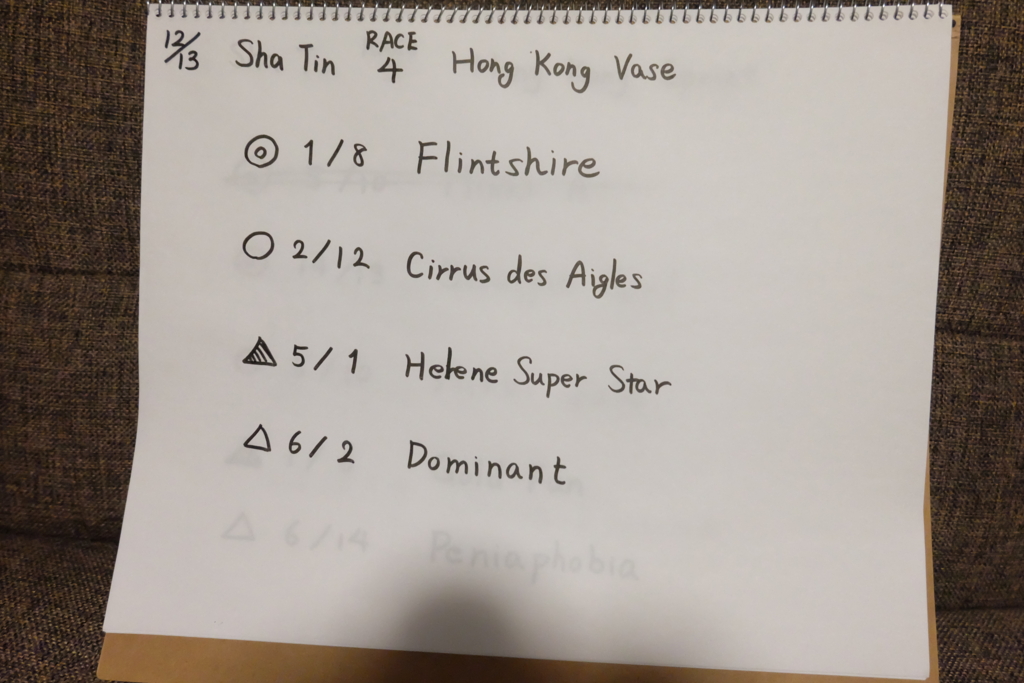 12/13 Sha Tin RACE 4 Hong Kong Vase
◎ 1/8 Flintshire
○ 2/12 Cirrus des Aigles
▲ 5/1 Helene Super Star
△ 6/2 Dominant
△ 6/14 Peniaphobia